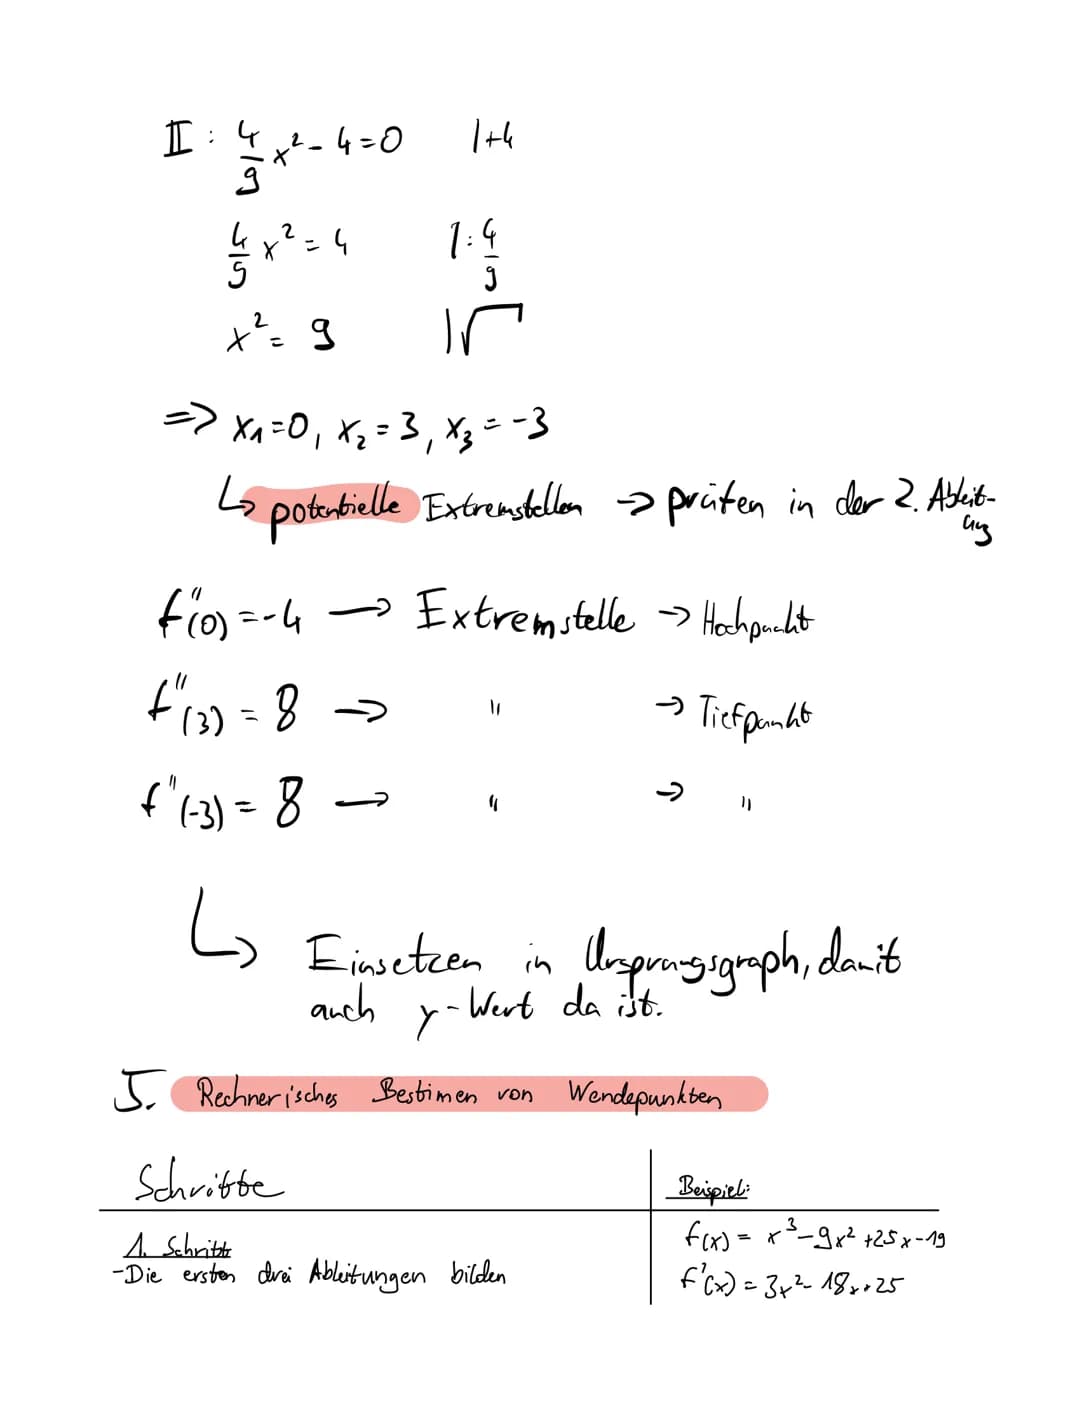 II : 4/9 x² - 4 = 0 | +4
4/9 x² = 4 | : 4/9
x² = 9 | √
=> x₁ = 0, x₂ = 3, x₃ = -3
↳ potentielle Extremstellen → prüfen in der 2. Ableit-
ung
f''(0) = -4 → Extremstelle → Hochpunkt
f''(3) = 8 → " → Tiefpunkt
f''(-3) = 8 → " → "
↳ Einsetzen in Ursprungsgraph, damit
auch y-Wert da ist.
5. Rechnerisches Bestimen von Wendepunkten
Schritte Beispiel:
1. Schritt f(x) = x³ - 9x² + 25x - 19
- Die ersten drei Ableitungen bilden f'(x) = 3x² - 18x + 25